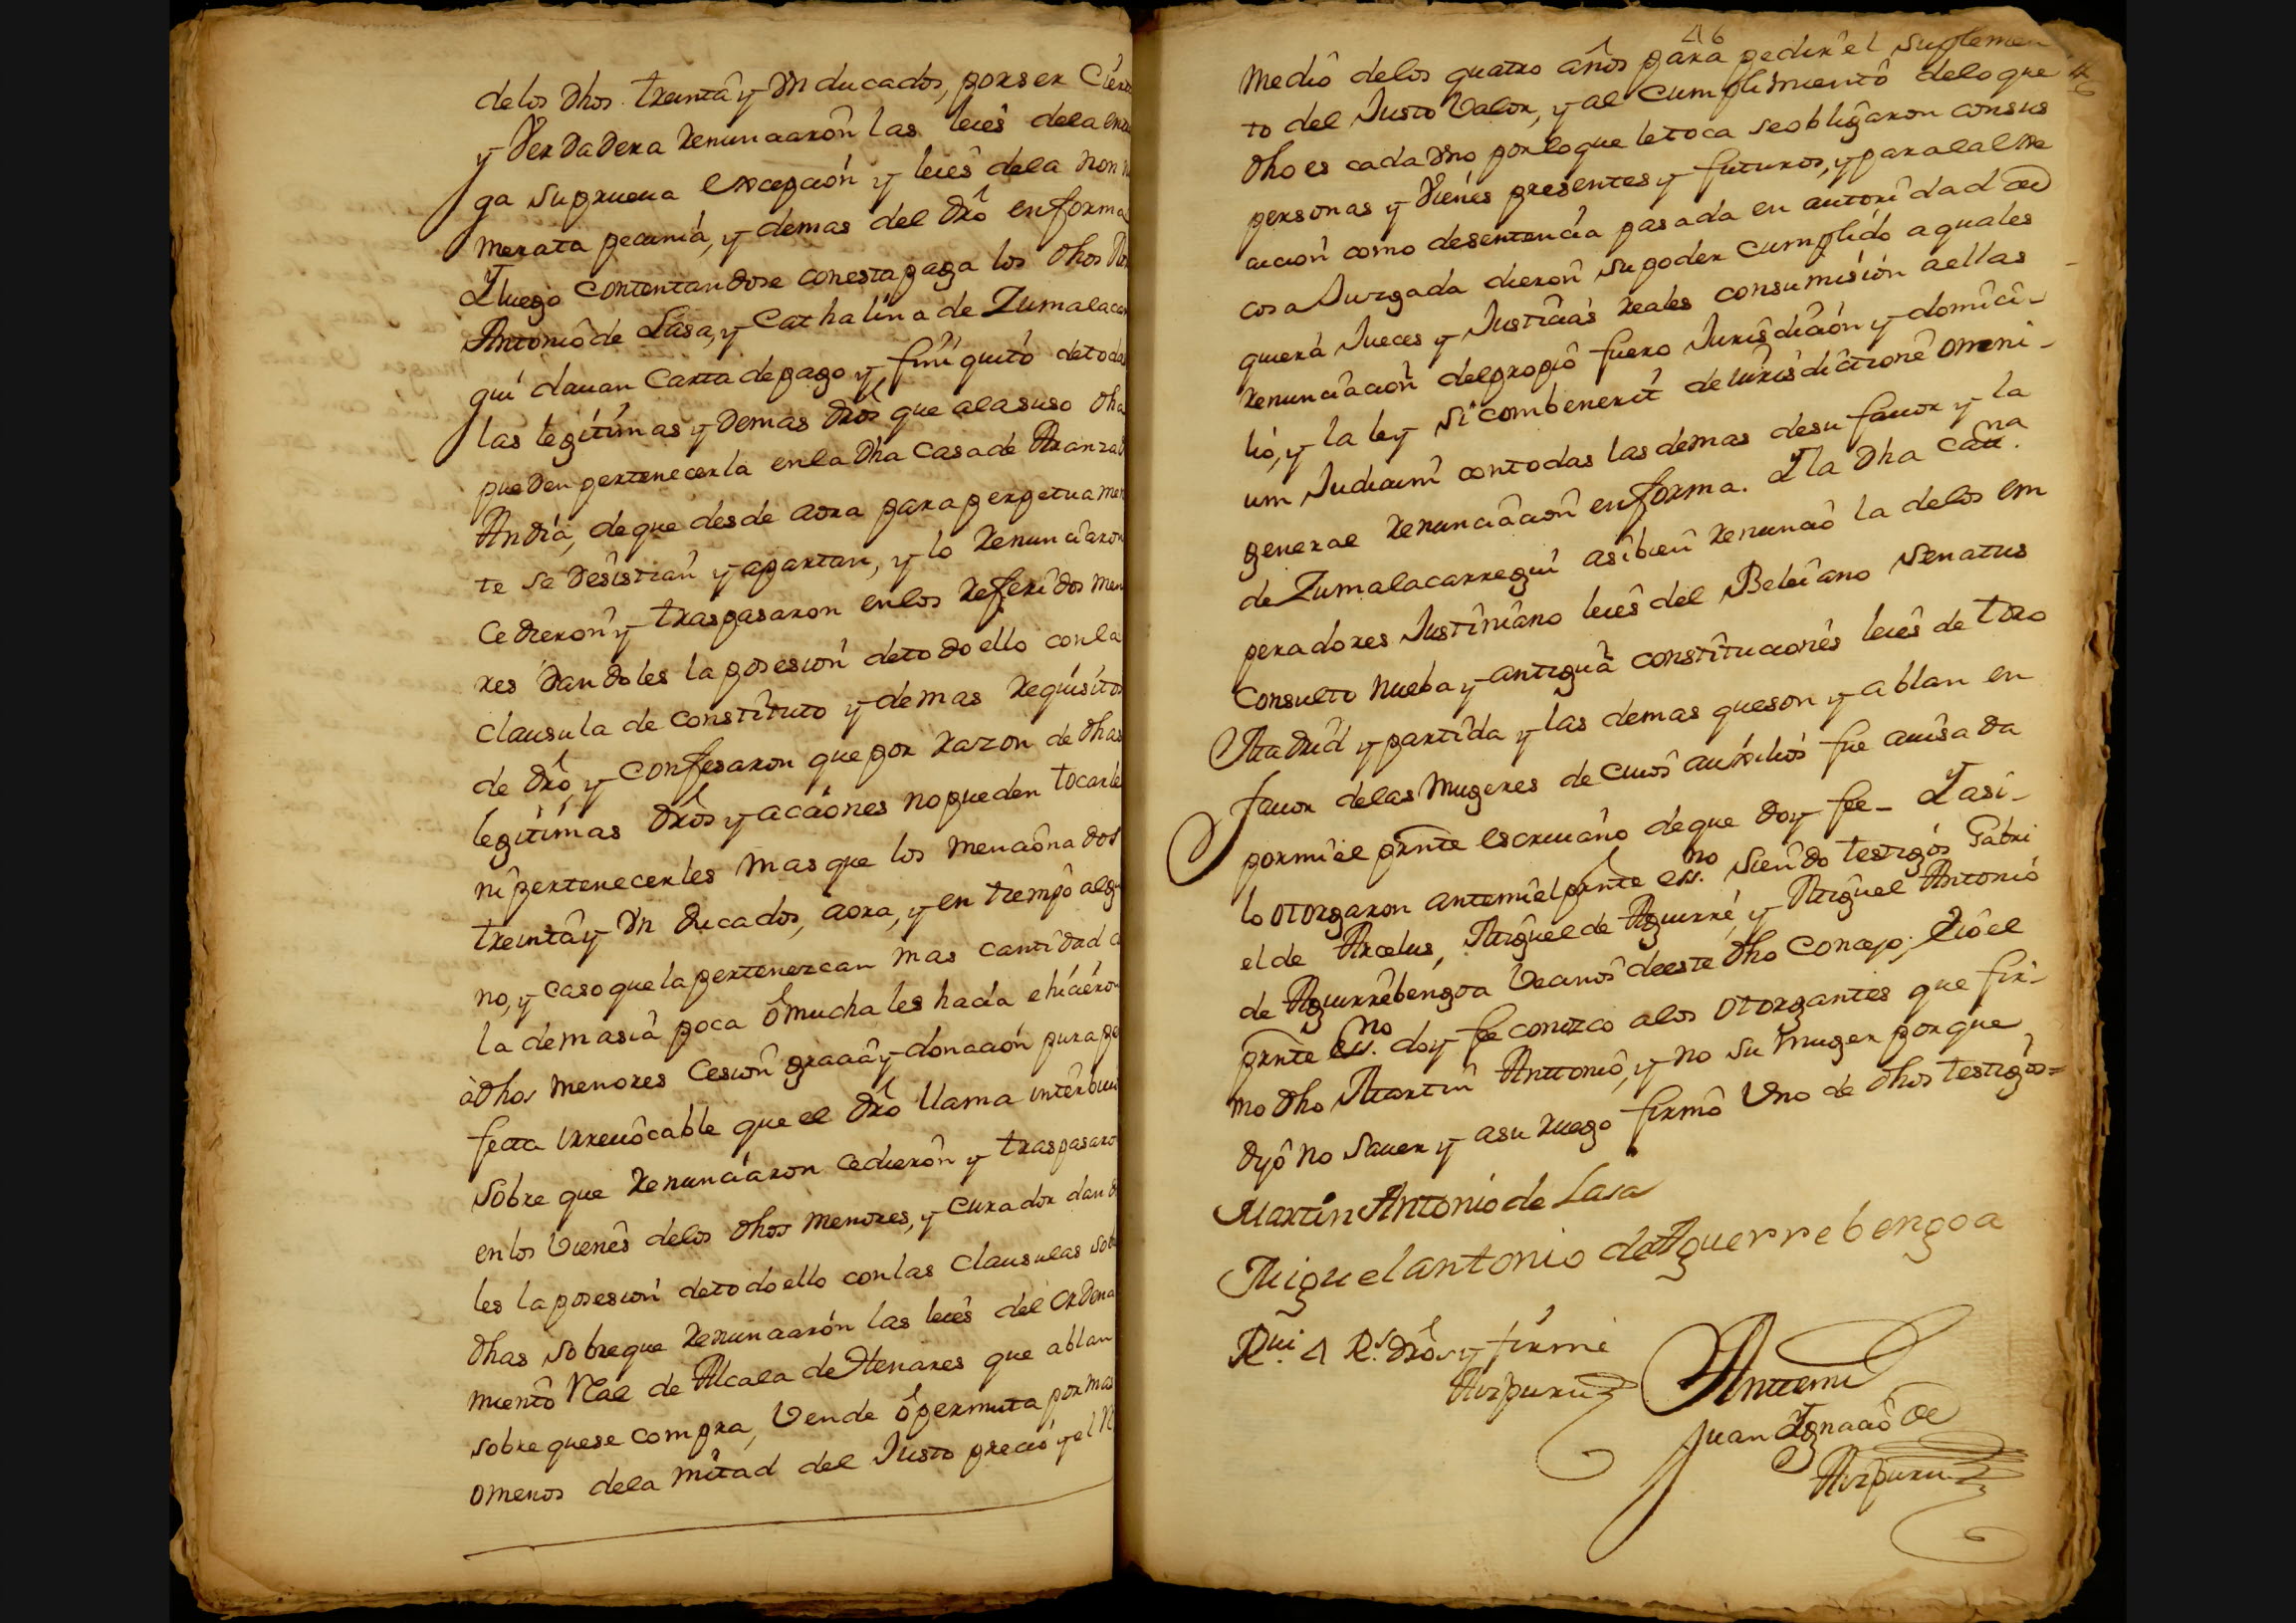 delos dhos. treinta y vn ducados, por ser Ciert
y Verdadera renunciaron las leies dela entre
ga su prueua excepción y leies dela non nu
merata pecunia, y demas del dro en forma
Y luego contentandose con esta paga los dhos
Antonio de Lasa, y Cathalina de Zumalacar
gui dauan Carta de pago y finiquito de todas
las legitimas y demas dros que ala suso dha
pueden pertenecerla en la dha Casa de Aranzadi
Andia, de que desde aora para perpetuamen
te se desistian y apartan, y lo renunciaron
Cedieron y traspasaron en los referidos meno
res dandoles la posesion de todo ello con la
clausula de constituto y demas requisitos
de dro, y confesaron que por razon de dhas
legitimas dros y acciones no pueden tocarle
ni pertenecerles mas que los mencionados
treinta y vn ducados, aora, y en tiempo algu
no, y caso que la pertenezcan mas cantidad de
la demasia poca o mucha les hacia e hicieron
a dhos menores Cesion gracia y donacion pura per
fecta irreuocable que el dro llama interbiuos
sobre que renunciaron cedieron y traspasaron
en los vienes delos dhos menores, y curador dando
les la posesion de todo ello con las clausulas sobre
dhas sobre que renunciaron las leies del ordena
miento Rl de Alcala de Henares que ablan
sobre que se compra, vende o permuta por mas
o menos dela mitad del Justo precio y el Re
46
medio delos quatro años para pedir el suplemen
to del Justo valor, y al cumplimiento delo que
dho es cada vno por lo que le toca se obligaron con sus
personas y vienes presentes y futuros, y para la
cucion como de sentencia pasada en autoridad de
cosa Juzgada dieron su poder cumplido a quales
quiera Jueces y Justicias reales con sumision a ellas
renunciacion del propio fuero Jurisdicion y domici-
lio, y la ley si combenerit de iurisdictione omni-
um Judicum con todas las demas de su fauor y la
general renunciacion en forma. Y la dha Cat.na
de Zumalacarregui asi bien renuncio la delos em
peradores Justiniano leies del Beleiano Senatus
Consulto nueba y antigua constituciones leies de toro
Madrid y partida y las demas que son y ablan en
fauor delas mugeres de cuios auxilios fue auisada
por mi el prnte escriuano de que doy fee - Y asi-
lo otorgaron ante mi el prnte ess.no siendo testigos Gabri
el de Arcelus, Miguel de Aguirre, y Miguel Antonio
de Aguirrebengoa vecinos de este dho Concejo; Yo el
prnte ess.no doy fe conozco alos otorgantes que fir-
mo dho Martin Anttonio, y no su muger porque
dijo no sauer y a su ruego firmo vno de dhos testigos=
Martin Antonio de Lasa
Miguel antonio de Aguerrebengoa
R.ui 4 R.s dros y firme
Aizpuru
Antte mi
Juan Ygnacio de
Aizpuru